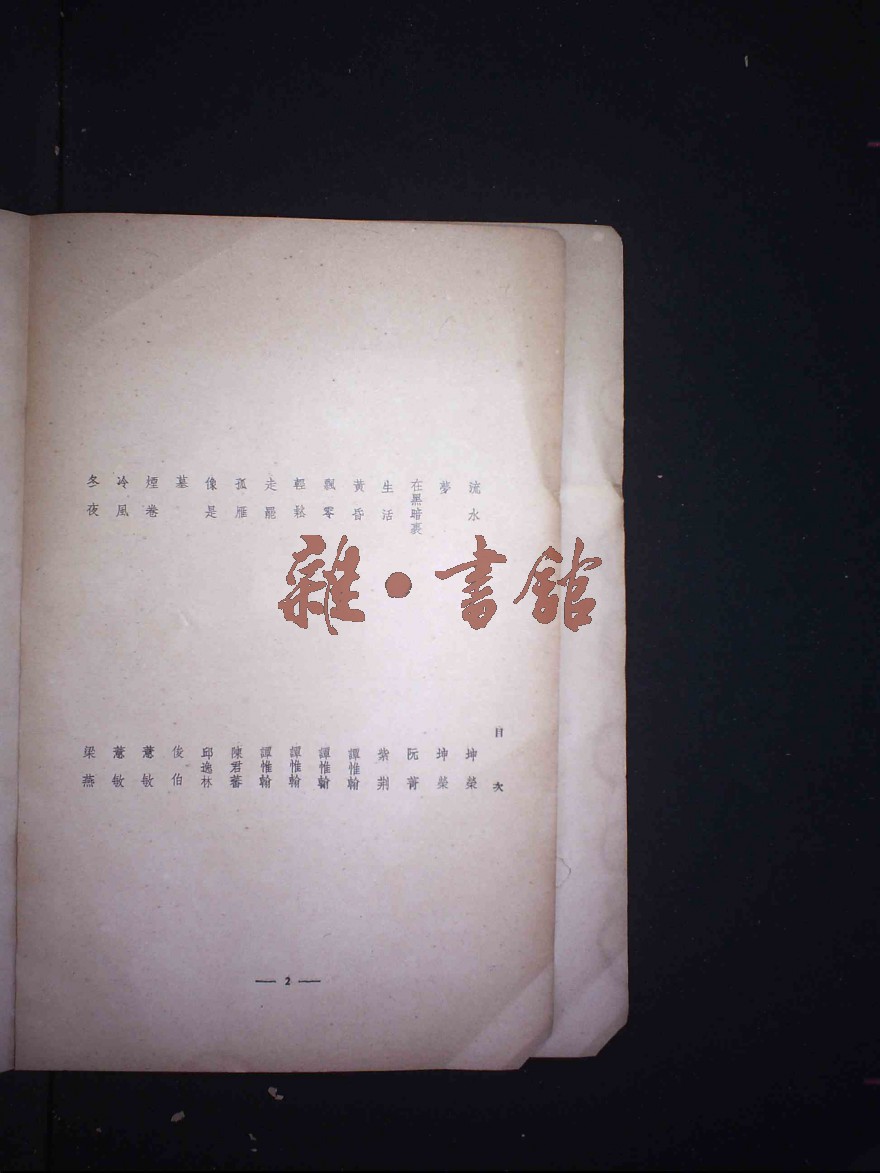 目次
流水 坤榮
夢 坤榮
在黑暗裏 阮菁
生活 紫荆
黃昏 譚惟翰
飄零 譚惟翰
輕鬆 譚惟翰
走罷 譚惟翰
孤雁 陳君蕃
像是 邱逸林
墓 俊伯
煙卷 薏敏
冷風 薏敏
冬夜 梁燕
— 2 —
雜·書館